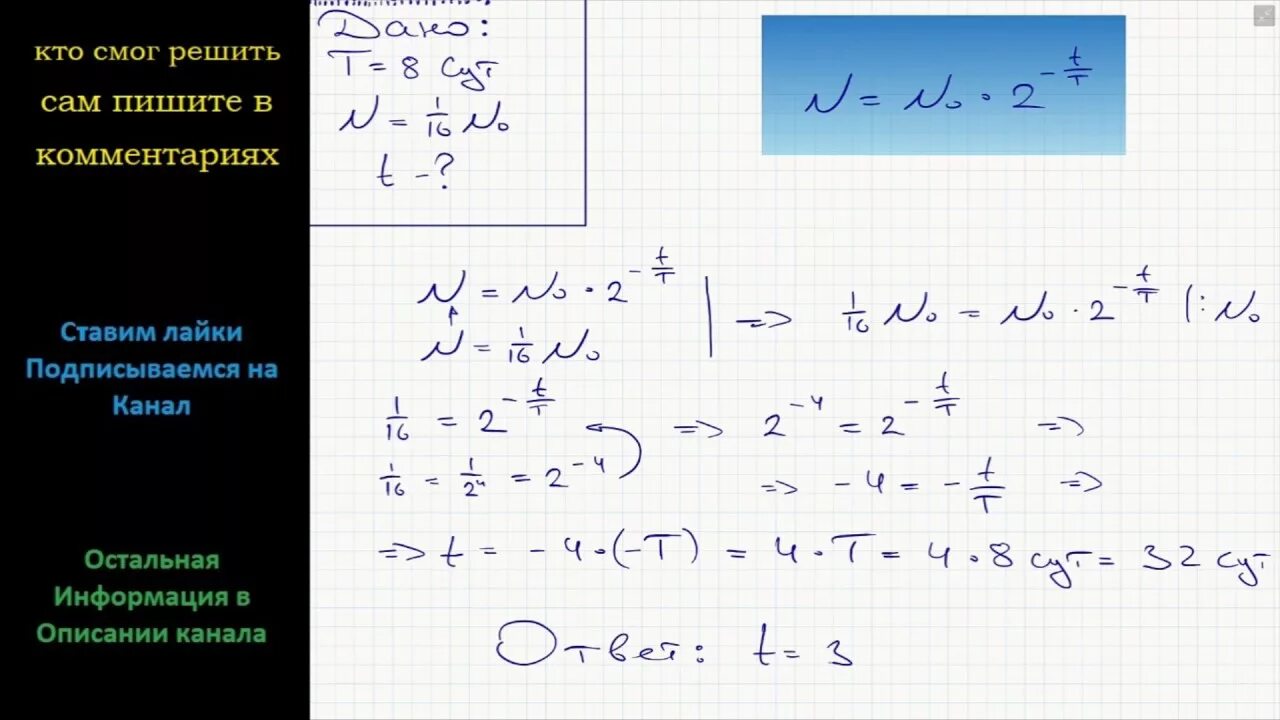 кто смог решить
сам пишите в
комментариях
Ставим лайки
Подписываемся на
Канал
Остальная
Информация в
Описании канала
Дано:
T = 8 сут
N = 1/16 N₀
t - ?
N = N₀ · 2^(-t/T)
N = N₀ · 2^(-t/T) | => 1/16 N₀ = N₀ · 2^(-t/T) |: N₀
N = 1/16 N₀
1/16 = 2^(-t/T) => 2^(-4) = 2^(-t/T) =>
1/16 = 1/2⁴ = 2^(-4) => -4 = -t/T =>
=> t = -4·(-T) = 4·T = 4·8 сут = 32 сут
Ответ: t = 3